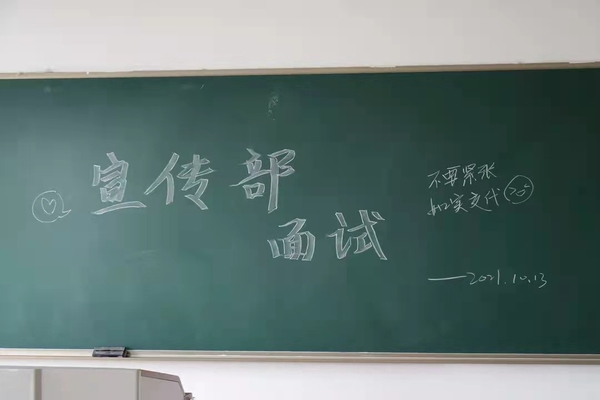 宣传部
面试
不要紧张
如实交代
——2021.10.13